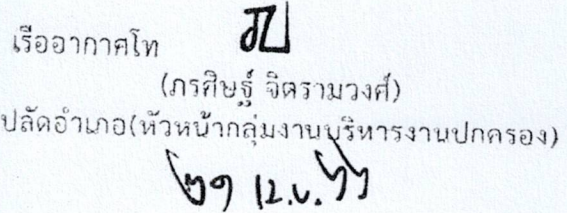 เรืออากาศโท
(ภรศิษฐ์ จิตรามวงศ์)
ปลัดอำเภอ(หัวหน้ากลุ่มงานบริหารงานปกครอง)
๒๑ เม.ย. ๖๖